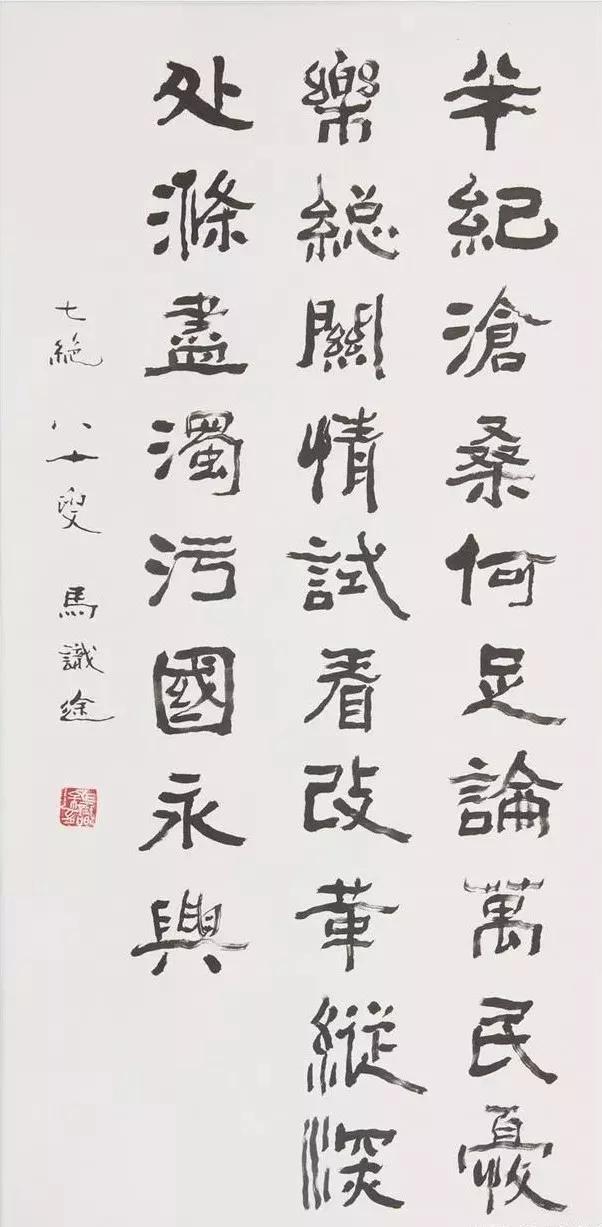 半紀滄桑何足論萬民憂
樂総關情試看改革縱深
处滌盡濁污國永興
七絶 八十叟 馬識途